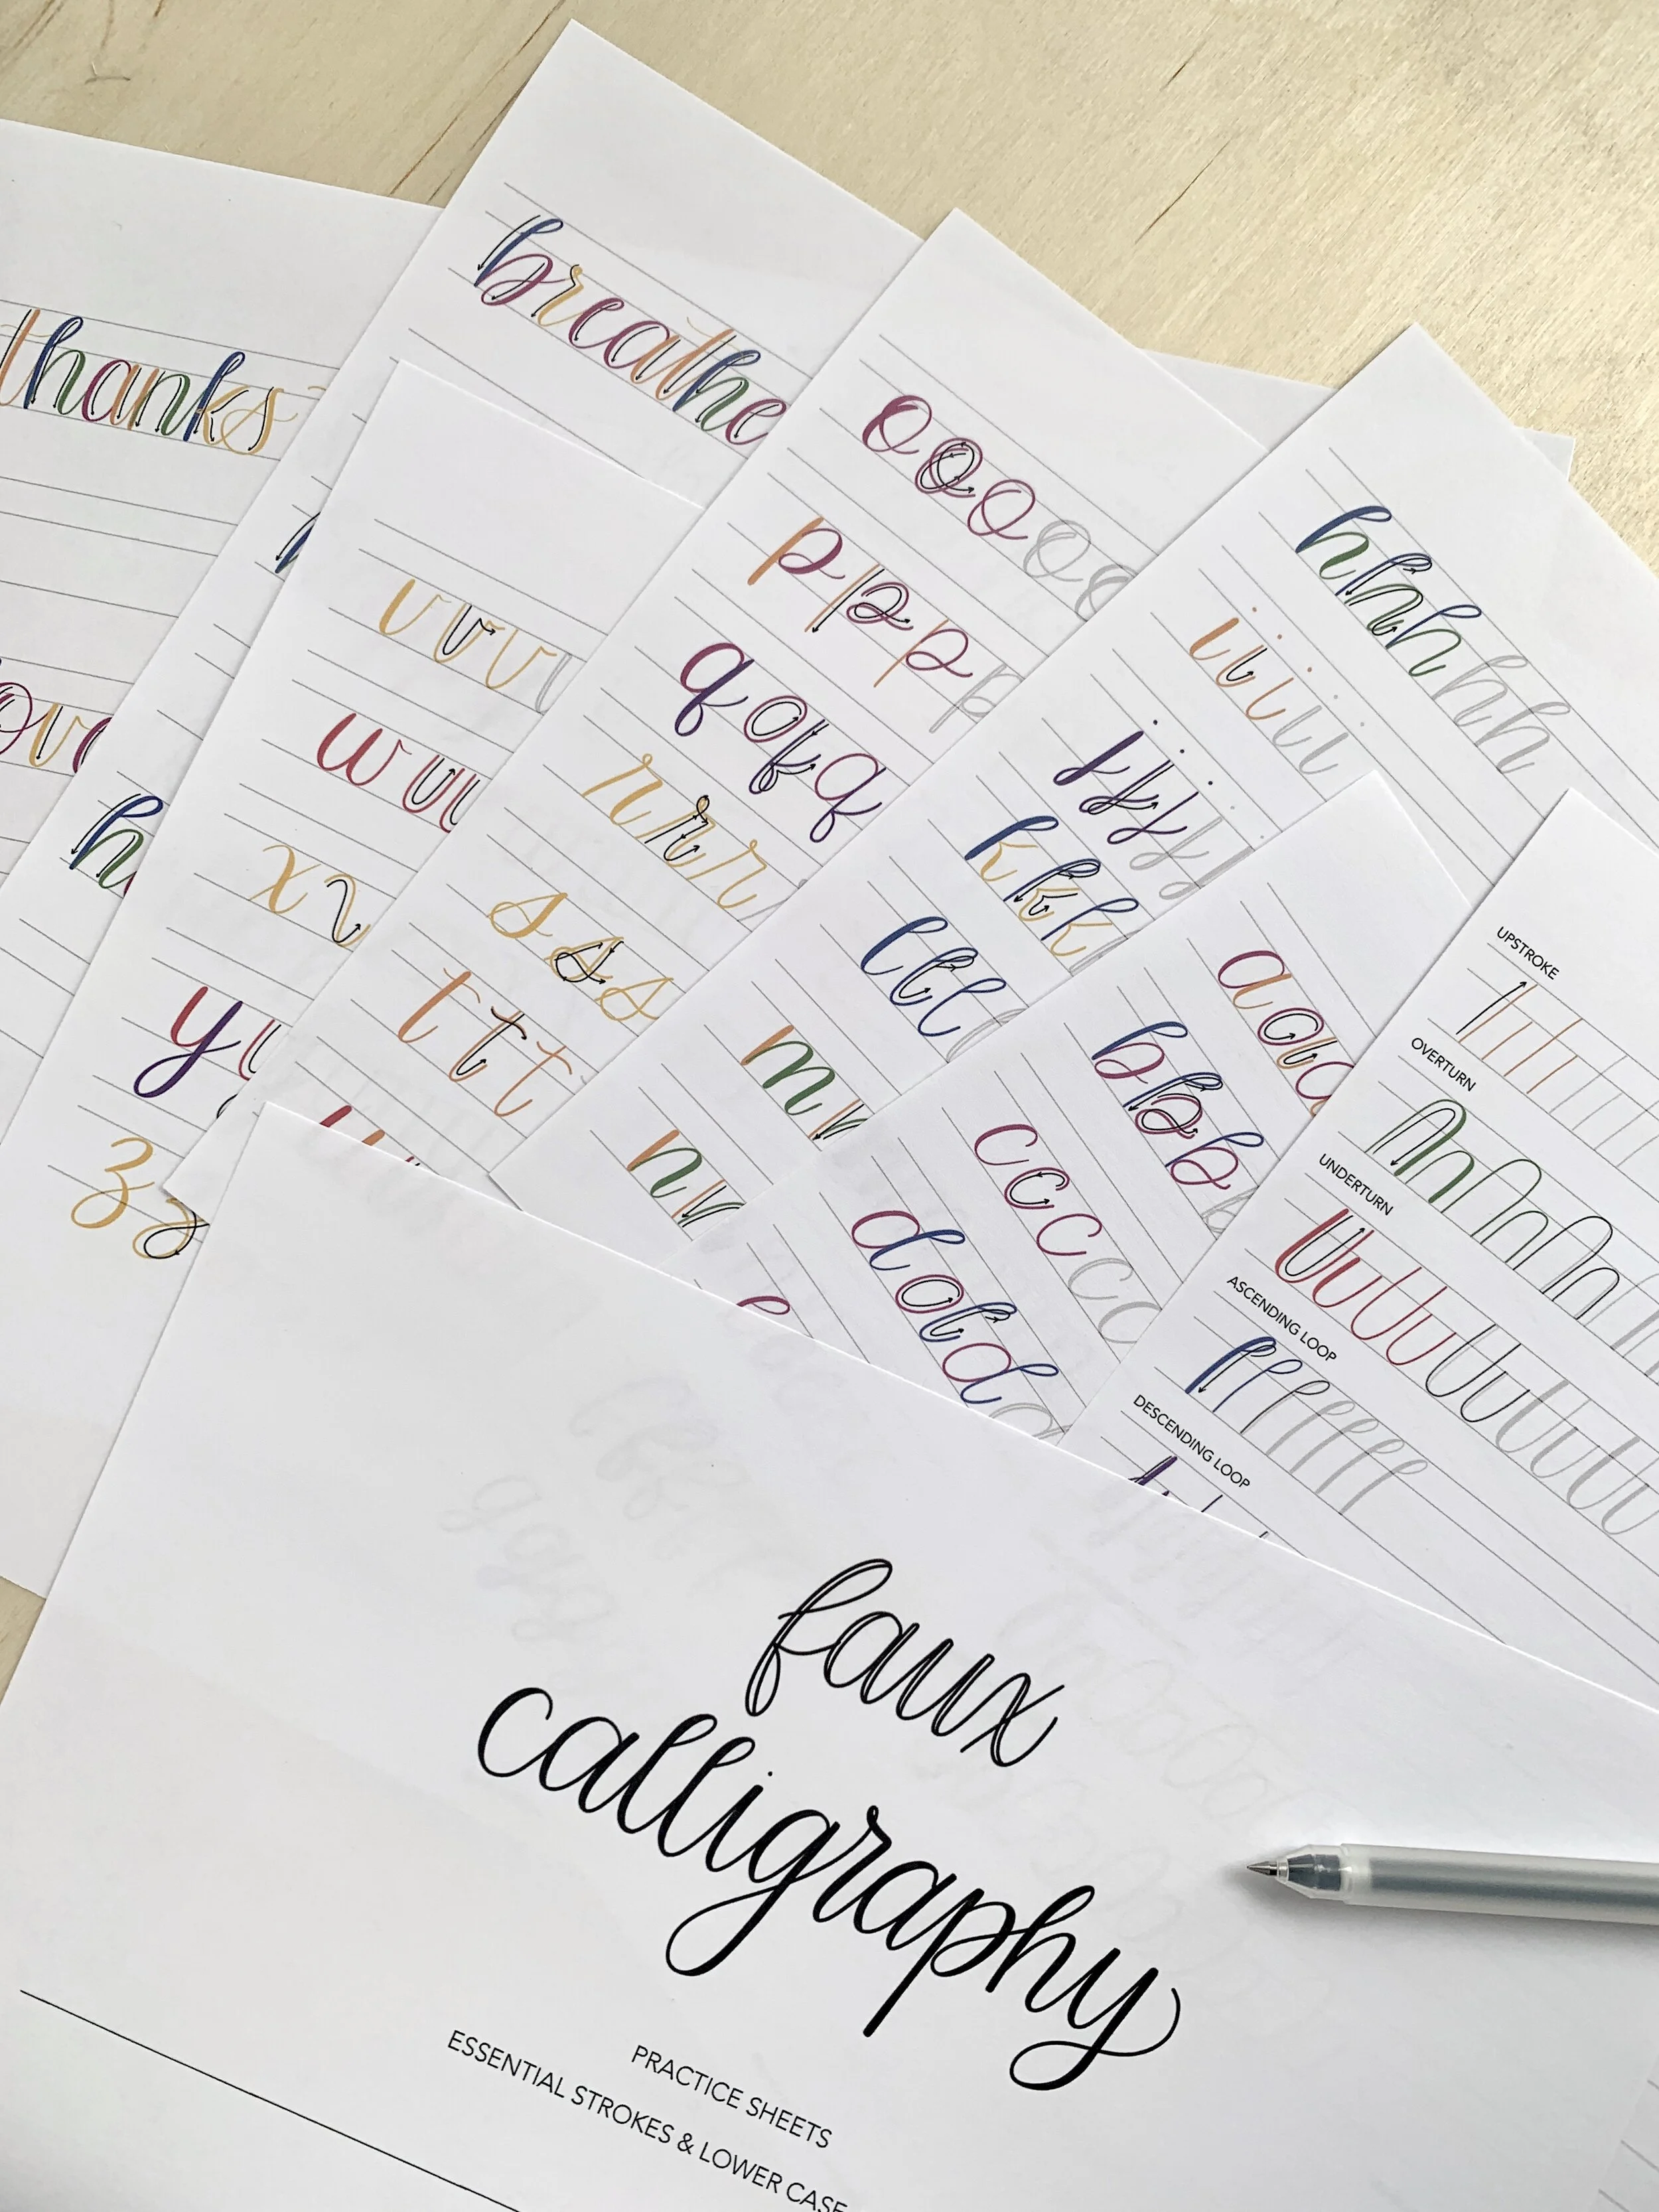 thanks
breathe
o o o o o
p p p p
q q q
r r r
s s s
t t t
h h h h h
i i i i i
j j j j
k k k
l l l l
m
n
v v v
w
x
y
z z
a a a
b b b
c c c c c
d d d
UPSTROKE
OVERTURN
UNDERTURN
ASCENDING LOOP
DESCENDING LOOP
faux
calligraphy
PRACTICE SHEETS
ESSENTIAL STROKES & LOWER CASE